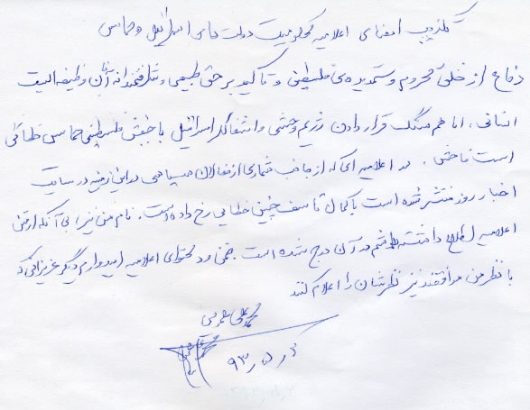 تکذیب امضای اعلامیه محکومیت دولت های اسرائیل و حماس
دفاع از خلق محروم و ستمدیده ی فلسطین و تأکید بر حق طبیعی و شرافتمندانه آنان وظیفه ایست
انسانی، اما هم سنگ قرار دادن رژیم وحشی و اشغالگر اسرائیل با جنبش فلسطینی حماس خطائی
است فاحش. در اعلامیه ای که از جانب شماری از فعالان سیاسی در این زمینه در سایت
اخبار روز منتشر شده است با کمال تأسف چنین خطایی رخ داده است. نام من نیز بی آنکه از متن
اعلامیه اطلاع داشته باشم در آن درج شده است. ضمن رد محتوای اعلامیه امیدوارم دیگر عزیزانی که
با نظر من موافقند نیز نظرشان را اعلام کنند
محمد علی عمویی
۹۳